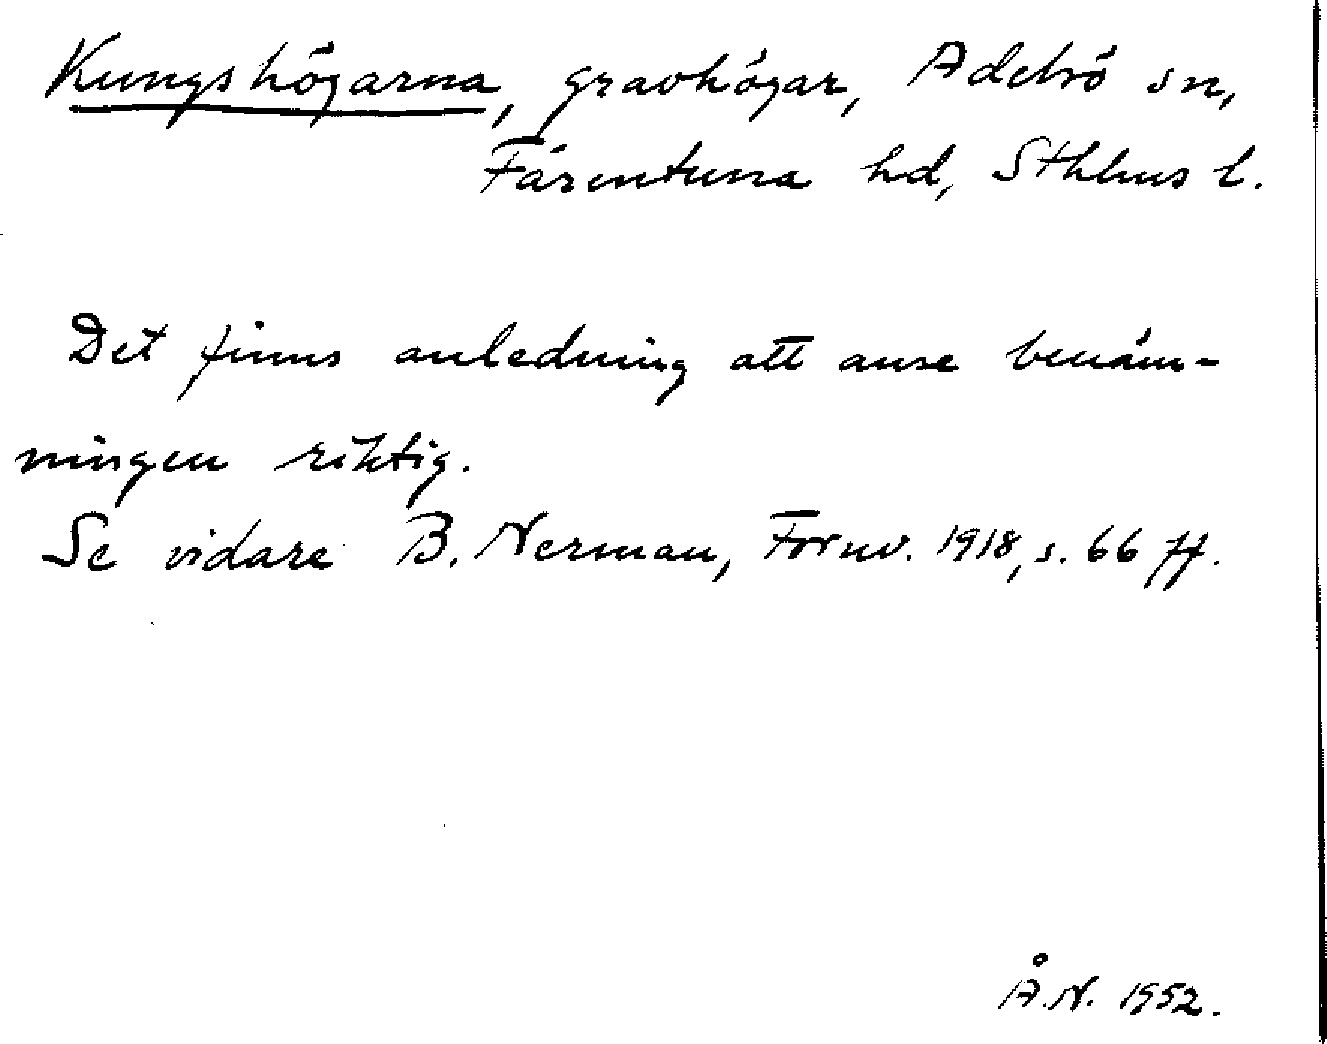 Kungshögarna, gravhögar, Adelsö sn,
Färentuna hd, Sthlms l.
Det finns anledning att anse benäm-
ningen riktig.
Se vidare B. Nerman, Fornv. 1918, s. 66 ff.
Å.N. 1952.